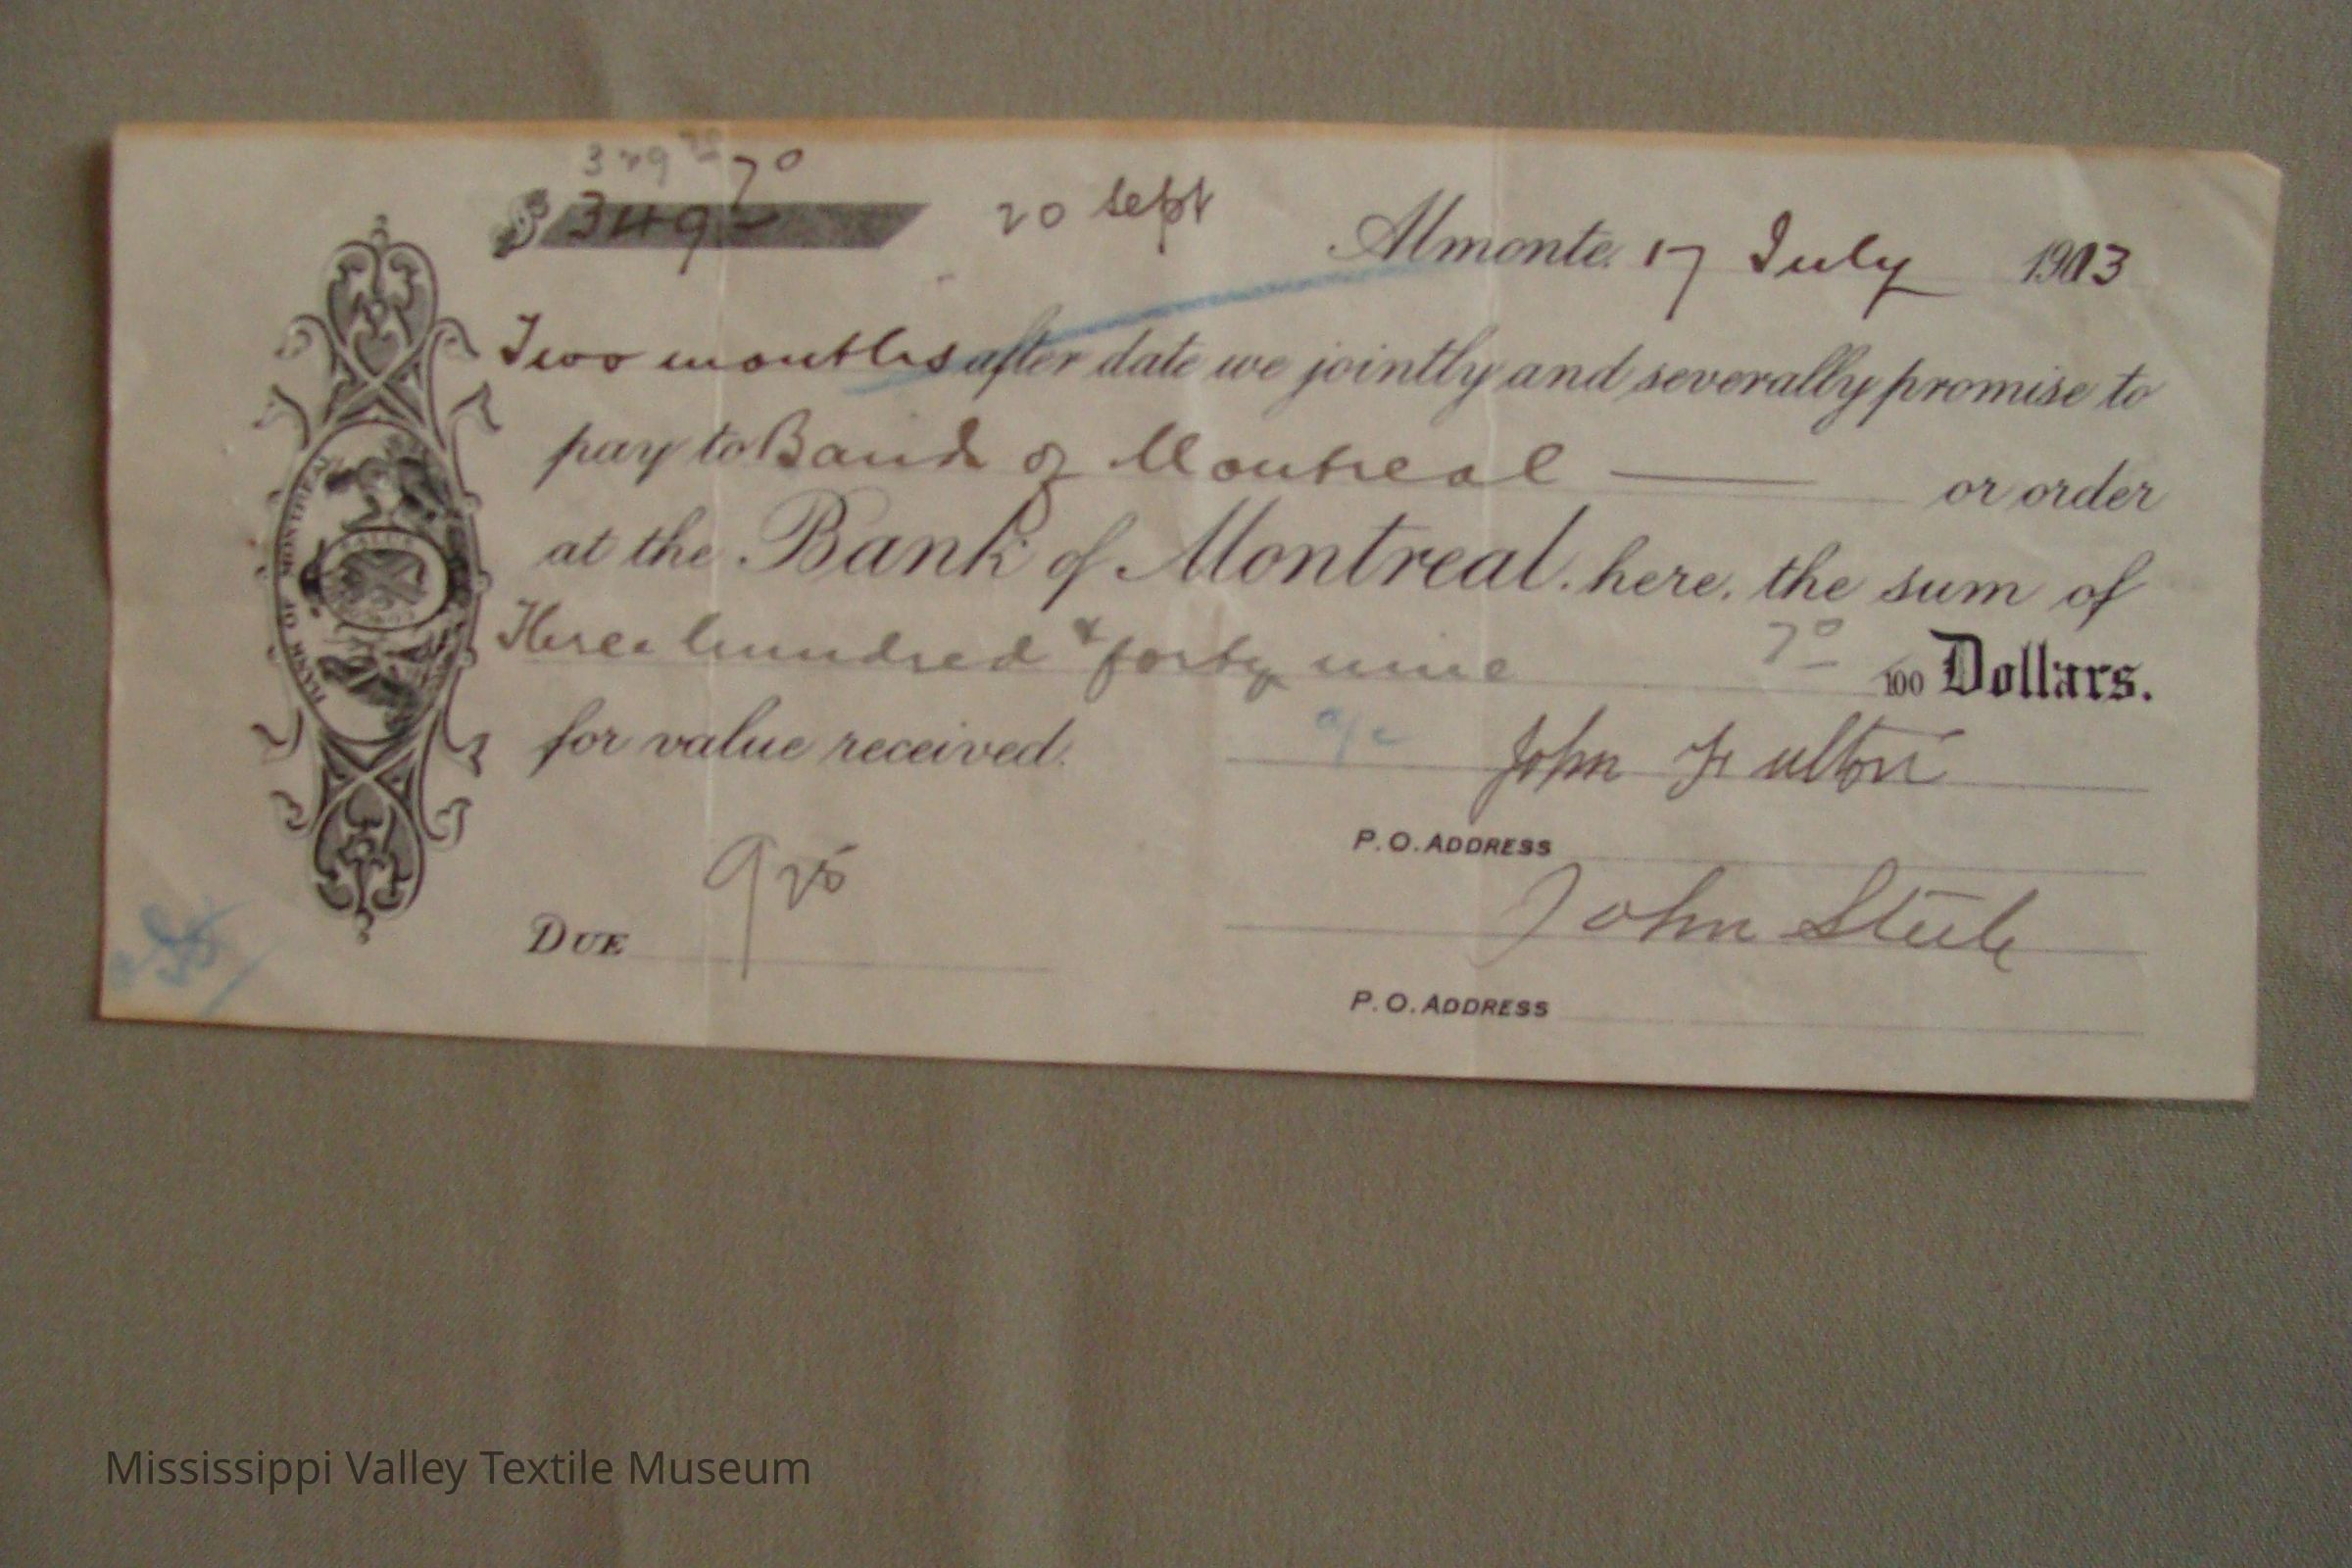 349 70
$ 349 70 20 Sept
Almonte. 17 July 1903
Two months after date we jointly and severally promise to
pay to Bank of Montreal or order
at the Bank of Montreal. here, the sum of
Three hundred & forty nine 70 100 Dollars.
for value received. John Fulton
P.O. ADDRESS
John Steele
DUE
P.O. ADDRESS
BANK OF MONTREAL
Mississippi Valley Textile Museum